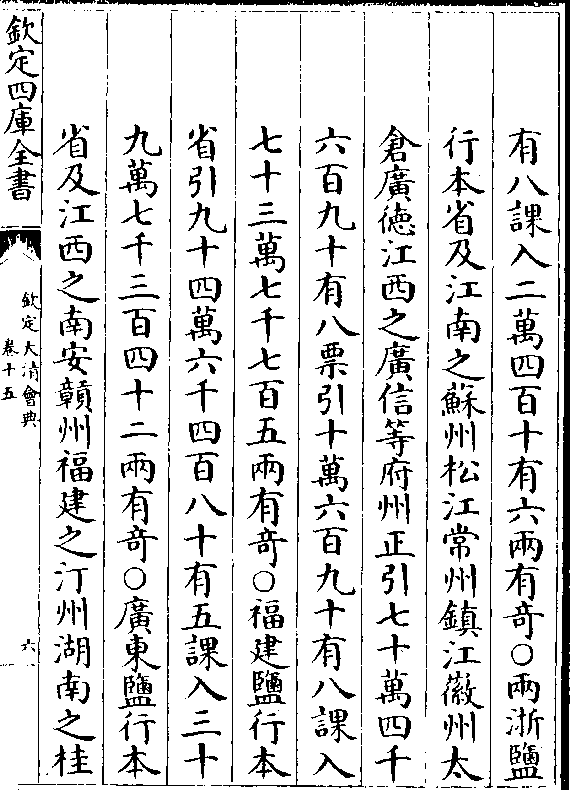 有八課入二萬四百十有六兩有竒○兩浙鹽
行本省及江南之蘇州松江常州鎮江徽州太
倉廣徳江西之廣信等府州正引七十萬四千
六百九十有八票引十萬六百九十有八課入
七十三萬七千七百五兩有竒○福建鹽行本
省引九十四萬六千四百八十有五課入三十
九萬七千三百四十二兩有竒○廣東鹽行本
省及江西之南安贛州福建之汀州湖南之桂
欽定四庫全書
欽定大清會典
卷十五
六